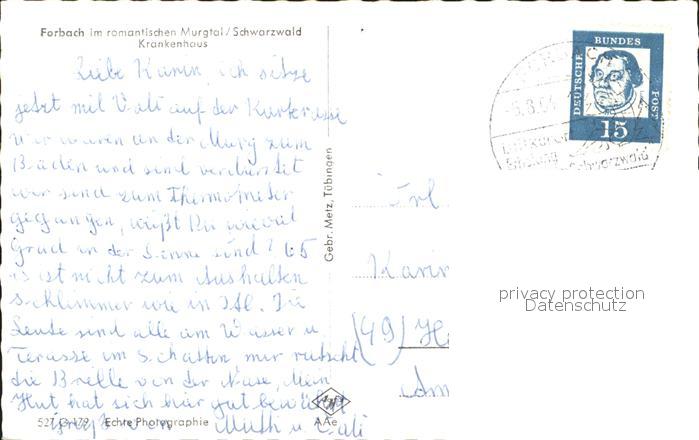 Forbach im romantischen Murgtal/Schwarzwald
Krankenhaus
Liebe Karin, ich sitze
jetzt mit Vati auf der Kurterasse
wir waren an der Murg zum
Baden und sind
wir sind zum Thermometer
gegangen, weißt Du wieviel
Grad in der Sonne sind? 65
es ist nicht zum Aushalten
schlimmer wie in Die
Leute sind alle am Wasser u
Terasse im Schatten mir rutscht
die Brille von der Nase, Mein
Hut hat sich hier gut bewährt
527 G 179 Echte Photographie
Grüße von Mutti u Vati
Gebr. Metz, Tübingen
AAe
DEUTSCHE BUNDES POST
15
Schwarzwald
Frl
Karin
(49)
privacy protection
Datenschutz